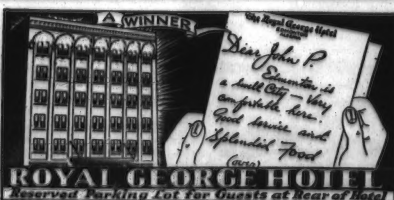 A WINNER
The Royal George Hotel
Dear John P.
Edmonton is
a swell City. Very
comfortable here.
Good service and
Splendid Food
(over)
ROYAL GEORGE HOTEL
Reserved Parking Lot for Guests at Rear of Hotel